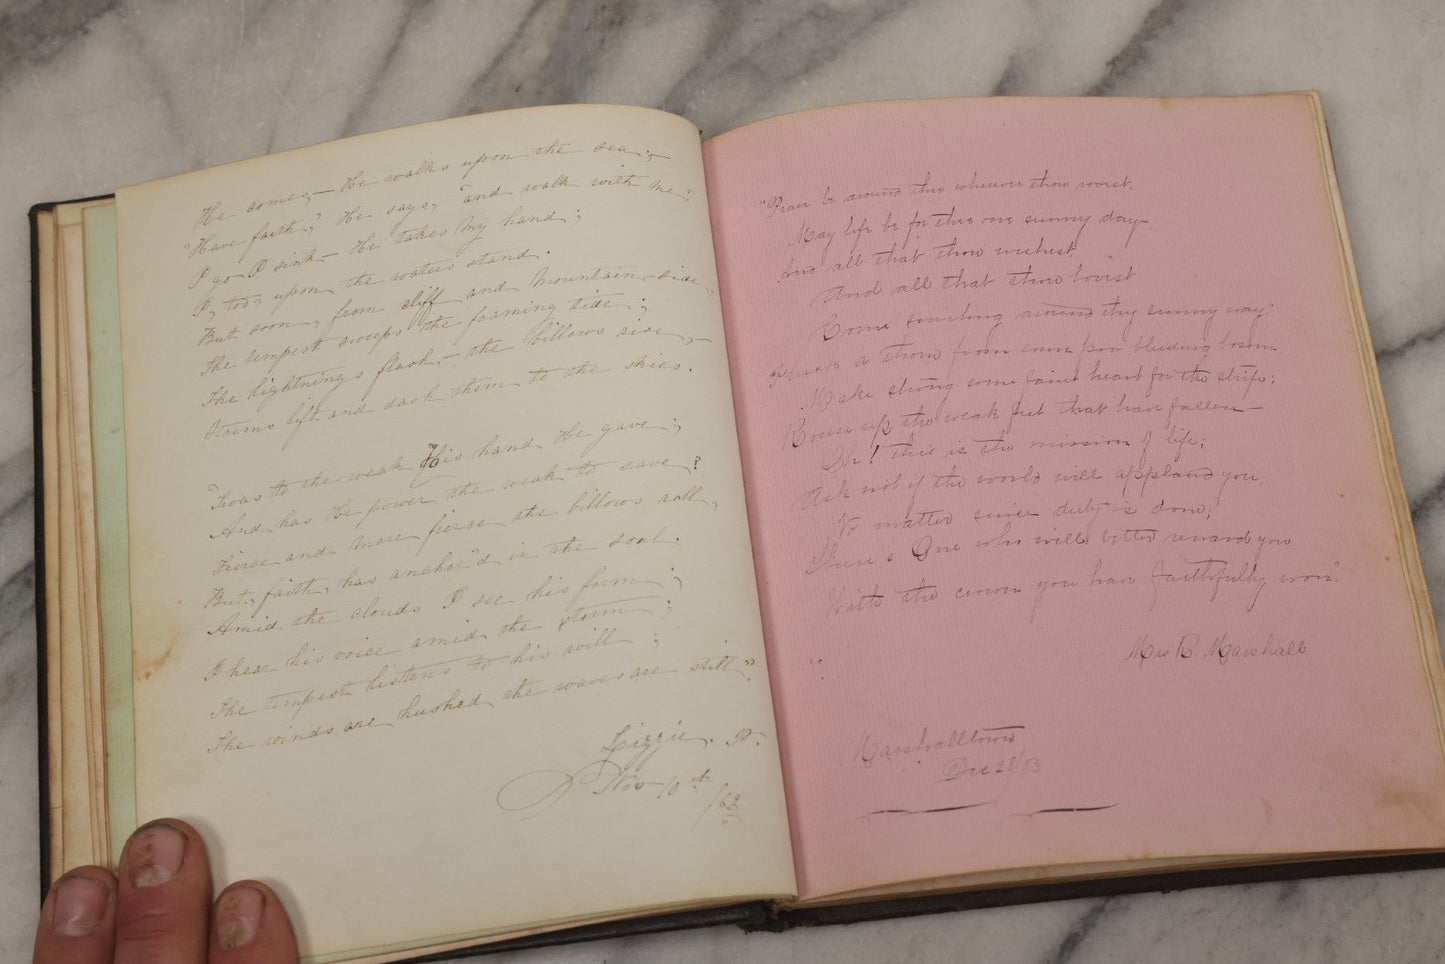 He comes,— He walks upon the sea;—
"Have faith," He says, "and walk with me;"
I go— I sink— He takes my hand;
I, too, upon the waters stand.
But soon, from cliff and mountain-side,
The tempest sweeps the foaming tide;
The lightnings flash,— the billows rise,—
Storms lift and dash them to the skies.
'Twas to the weak His hand He gave;
And has He power the weak to save?
Fierce and more fierce the billows roll,
But, faith, has anchor'd in the soul.
Amid the clouds I see his form;
I hear his voice amid the storm;
The tempest listens to his will;
The winds are hushed the waves are still"
Lizzie. W.
Nov 10th
/62
"Peace be around thee wherever thou rovest.
May life be for thee one sunny day
And all that thou wishest
And all that thou lovest
Come smiling around thy sunny way."
Pluck a thorn from some poor bleeding bosom
Make strong some faint heart for the strife;
Rouse up the weak just that have fallen—
Oh! this is the mission of life;
Ask not if the world will applaud you
No matter since duty is done;
There is One who will better reward you
With the crown you have faithfully won."
Mrs B. Marshall
Marshalltown
Dec 28/63